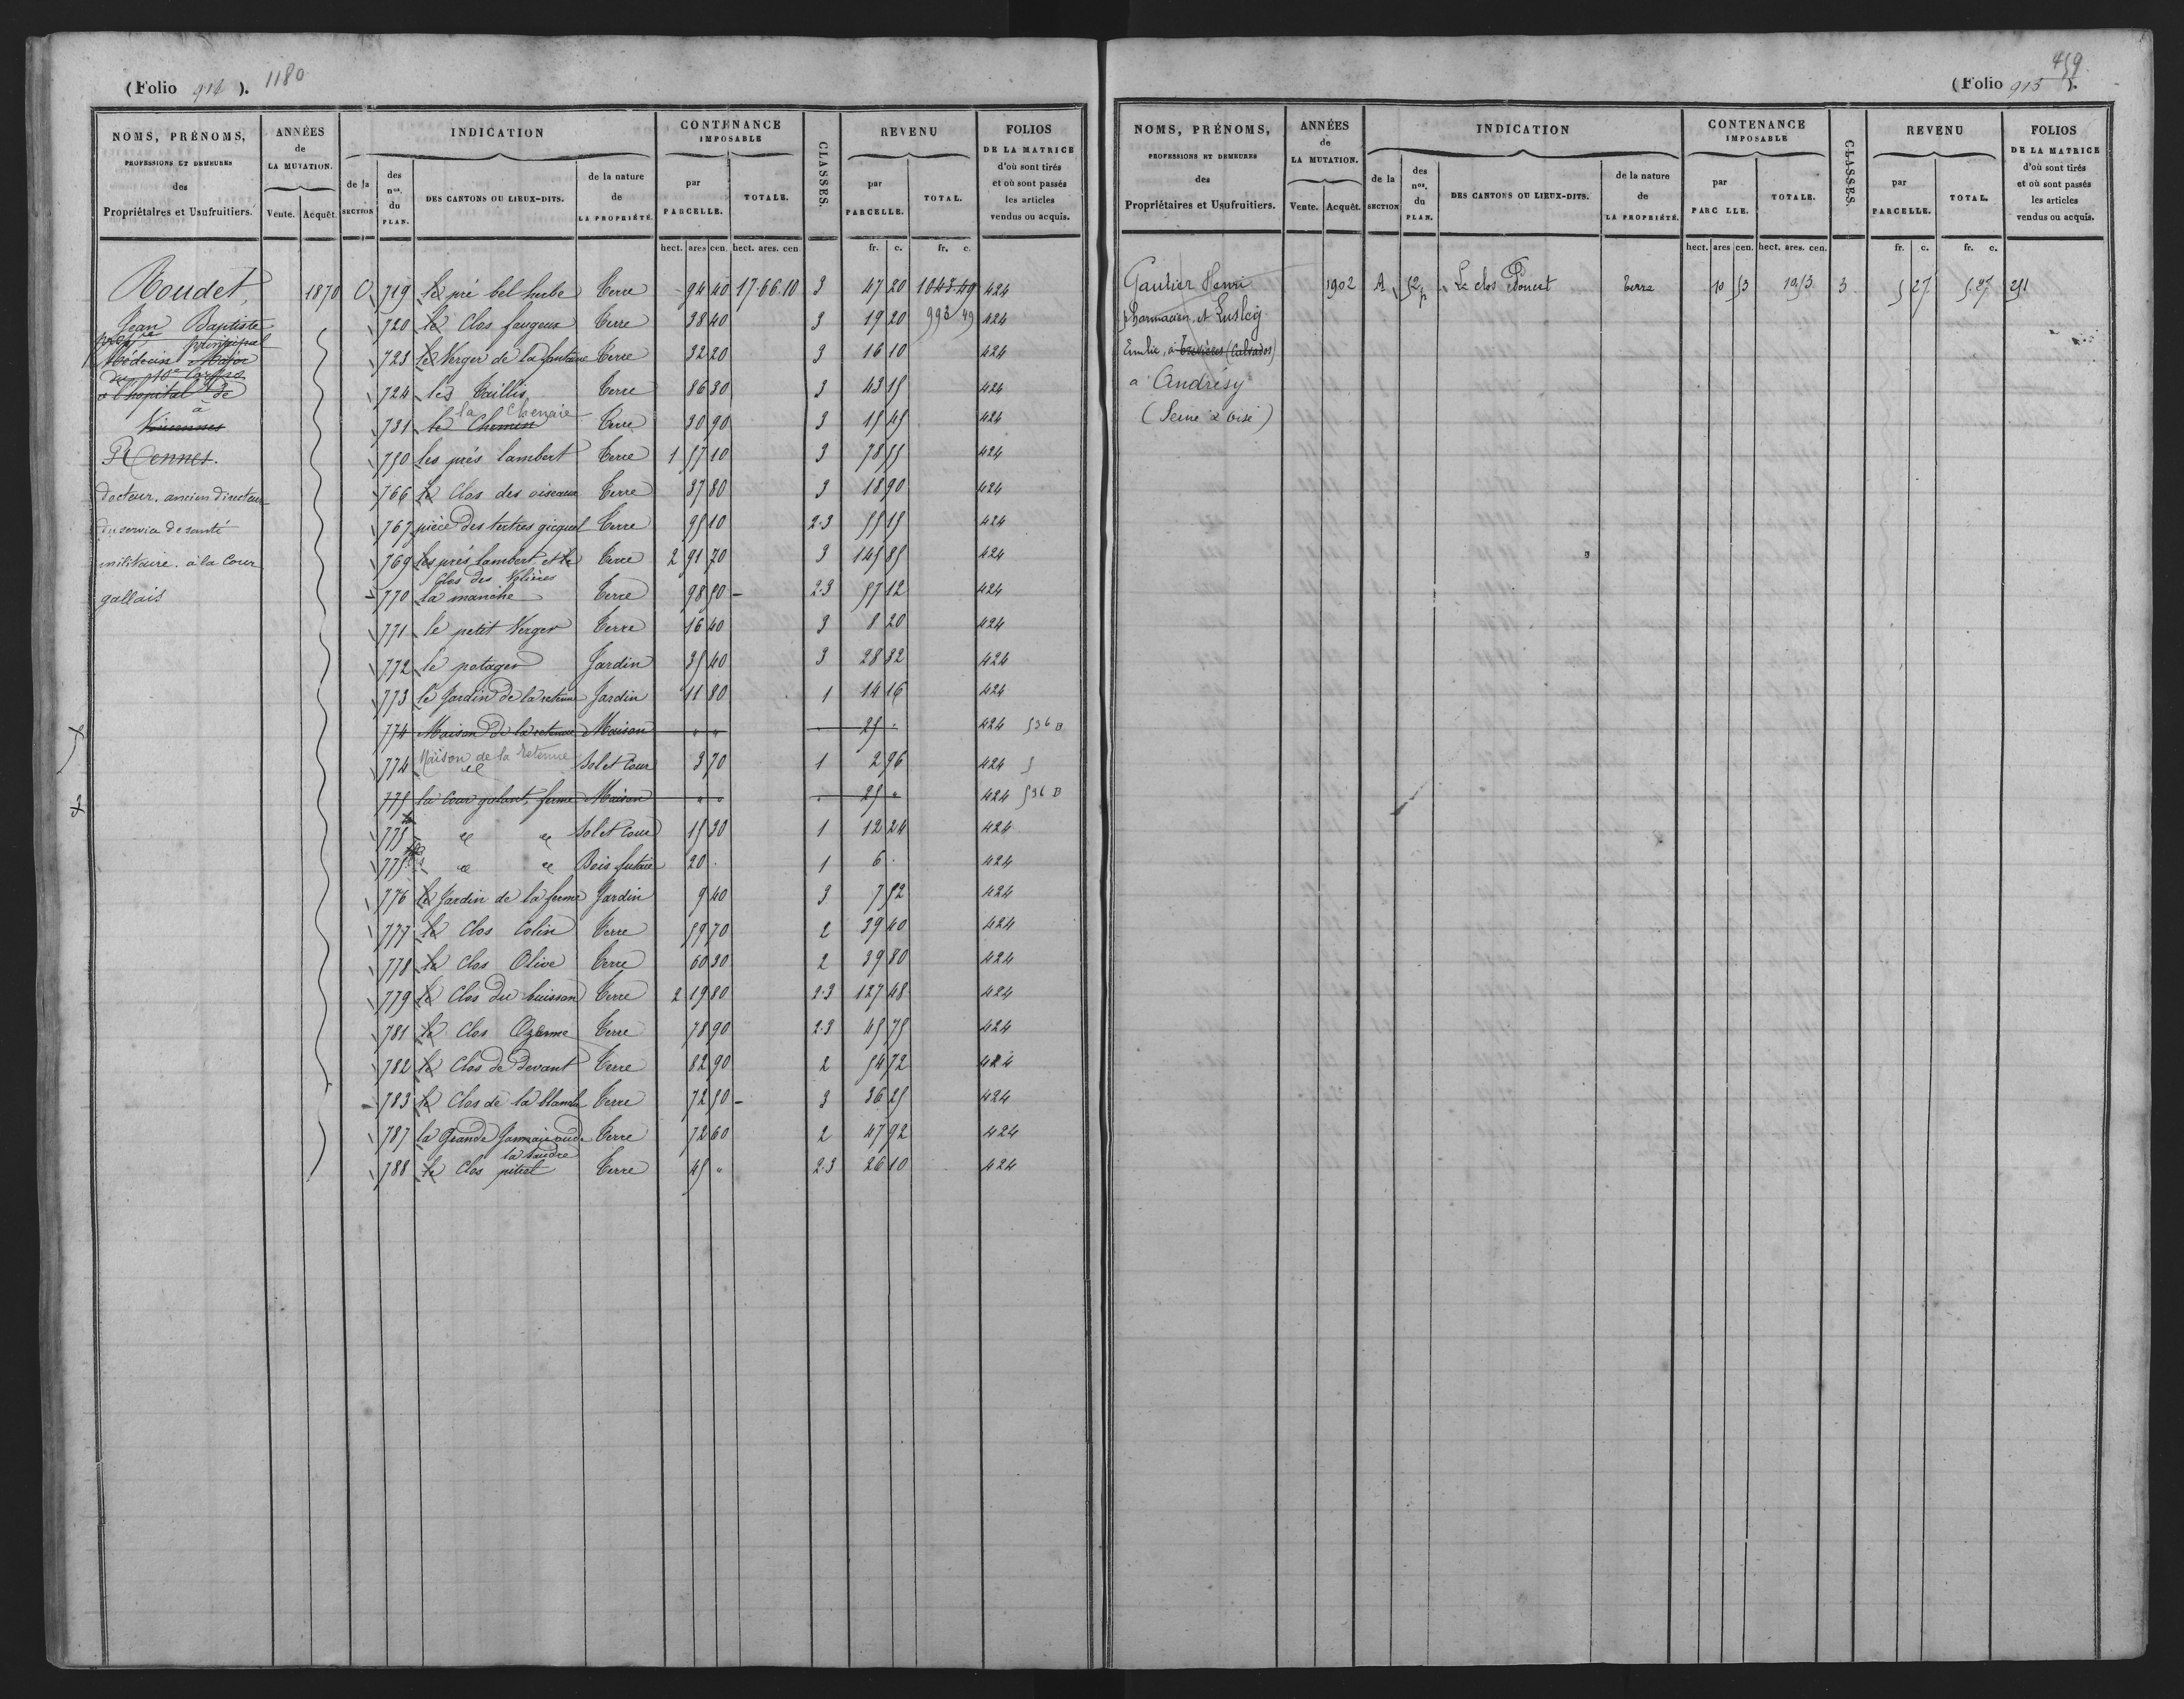 (Folio 914). 1180
NOMS, PRÉNOMS, PROFESSIONS ET DEMEURES des Propriétaires et Usufruitiers. | ANNÉES de LA MUTATION. Vente. Acquêt. | INDICATION de la SECTION | des nos. du PLAN. | DES CANTONS OU LIEUX-DITS. | de la nature de LA PROPRIÉTÉ. | CONTENANCE IMPOSABLE par PARCELLE. | TOTALE. | CLASSES. | REVENU par PARCELLE. | TOTAL. | FOLIOS DE LA MATRICE d'où sont tirés et où sont passés les articles vendus ou acquis.
hect. ares cen. hect. ares. cen fr. c. fr. c.
Roudet,
Jean Baptiste
principal
Médecin Major
à l'hopital de
à
Vincennes
Rennes.
docteur, ancien directeur
du service de santé
militaire, à la Cour
gallais
1870 C 719 le pré bel herbe Terre 94 40 17.66.10 3 47 20 1043.49 424
720 le Clos faugeux Terre 38 40 3 19 20 993 49 424
723 le Verger de la fontaine Terre 32 20 3 16 10 424
724 les Taillis Terre 86 30 3 43 15 424
731 le Chemin la Chenaie Terre 30 90 3 15 45 424
750 les prés lambert Terre 1 57 10 3 78 55 424
766 le Clos des oiseaux Terre 37 80 3 18 90 424
767 pièce des tertres gicquel Terre 95 10 2.3 55 15 424
769 les prés lambert et le Clos des Volières Terre 2 91 70 3 145 85 424
770 la manche Terre 98 50 2.3 57 12 424
771 le petit Verger Terre 16 40 3 8 20 424
772 le potager Jardin 35 40 3 28 32 424
773 le Jardin de la retenue Jardin 11 80 1 14 16 424
774 Maison de la retenue Maison " " 25 . 424 536 B
774 Maison de la retenue Sol et Cour 3 70 1 2 96 424
775 la Cour galant, ferme Maison " " 25 " 424 536 B
775 d° d° Sol et Cour 15 30 1 12 24 424
775 d° d° Bois futaie 20 . 1 6 . 424
776 le Jardin de la ferme Jardin 9 40 3 7 52 424
777 le Clos Colin Terre 59 70 2 39 40 424
778 le Clos Olive Terre 60 30 2 39 80 424
779 le Clos du buisson Terre 2 19 80 2.3 127 48 424
781 le Clos Ozanne Terre 78 90 2.3 45 75 424
782 le Clos de devant Terre 82 90 2 54 72 424
783 le Clos de la blanche Terre 72 50 3 36 25 424
787 la Grande Jannaie ou de la baudre Terre 72 60 2 47 92 424
788 le Clos pitrel Terre 45 " 2.3 26 10 424
459
(Folio 915).
NOMS, PRÉNOMS, PROFESSIONS ET DEMEURES des Propriétaires et Usufruitiers. | ANNÉES de LA MUTATION. Vente. Acquêt. | INDICATION de la SECTION | des nos. du PLAN. | DES CANTONS OU LIEUX-DITS. | de la nature de LA PROPRIÉTÉ. | CONTENANCE IMPOSABLE par PARC LLE. | TOTALE. | CLASSES. | REVENU par PARCELLE. | TOTAL. | FOLIOS DE LA MATRICE d'où sont tirés et où sont passés les articles vendus ou acquis.
hect. ares cen. hect. ares. cen. fr. c. fr. c.
Gautier Henri 1902 A 52 p Le clos Douest terre 10 53 10 53 3 5 27 5.27 251
pharmacien et Lusley
Emilie, à Trévières (Calvados)
a Andrésy
(Seine & oise)